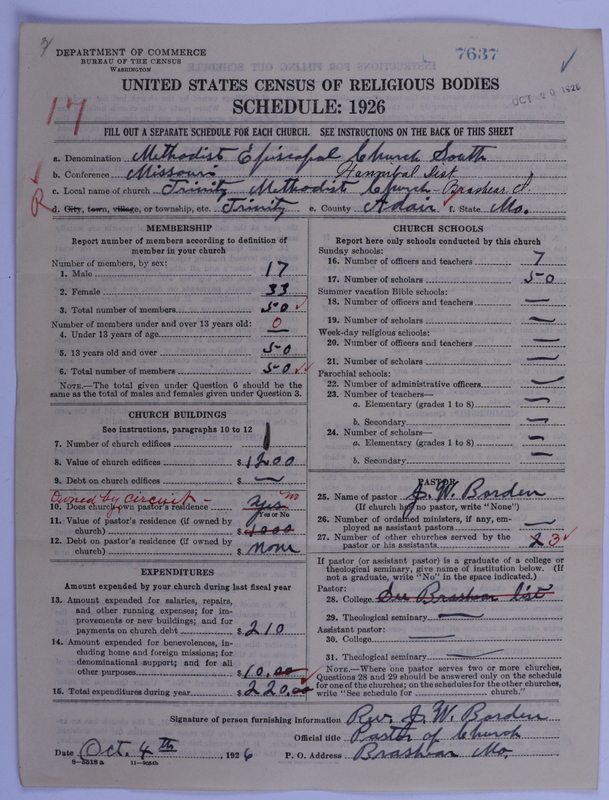 DEPARTMENT OF COMMERCE
BUREAU OF THE CENSUS
WASHINGTON
7637
OCT 20 1926
UNITED STATES CENSUS OF RELIGIOUS BODIES
SCHEDULE: 1926
17
FILL OUT A SEPARATE SCHEDULE FOR EACH CHURCH. SEE INSTRUCTIONS ON THE BACK OF THIS SHEET
a. Denomination Methodist Episcopal Church South
b. Conference Missouri Hannibal Dist.
c. Local name of church Trinity Methodist Church - Brashear
R
d. City, town, village, or township, etc. Trinity e. County Adair f. State Mo.
MEMBERSHIP
Report number of members according to definition of
member in your church
Number of members, by sex:
1. Male 17
2. Female 33
3. Total number of members 50
Number of members under and over 13 years old: 0
4. Under 13 years of age —
5. 13 years old and over 50
6. Total number of members 50
NOTE.—The total given under Question 6 should be
the same as the total of males and females given under Question 3.
CHURCH BUILDINGS
See instructions, paragraphs 10 to 12
7. Number of church edifices 1
8. Value of church edifices $ 1200
9. Debt on church edifices $ —
Owned by circuit -
10. Does church own pastor's residence yes no
Yes or No
11. Value of pastor's residence (if owned by
church) $ 1000
12. Debt on pastor's residence (if owned by
church) $ none
EXPENDITURES
Amount expended by your church during last fiscal year
13. Amount expended for salaries, repairs,
and other running expenses; for im-
provements or new buildings; and for
payments on church debt $ 210
14. Amount expended for benevolences, in-
cluding home and foreign missions; for
denominational support; and for all
other purposes $ 10.00
15. Total expenditures during year $ 220.00
CHURCH SCHOOLS
Report here only schools conducted by this church
Sunday schools:
16. Number of officers and teachers 7
17. Number of scholars 50
Summer vacation Bible schools:
18. Number of officers and teachers —
19. Number of scholars —
Week-day religious schools:
20. Number of officers and teachers —
21. Number of scholars —
Parochial schools:
22. Number of administrative officers —
23. Number of teachers—
a. Elementary (grades 1 to 8) —
b. Secondary —
24. Number of scholars—
a. Elementary (grades 1 to 8) —
b. Secondary —
PASTOR
25. Name of pastor J. W. Borden
(If church has no pastor, write "None")
26. Number of ordained ministers, if any, em-
ployed as assistant pastors —
27. Number of other churches served by the
pastor or his assistants 2 3
If pastor (or assistant pastor) is a graduate of a college or
theological seminary, give name of institution below. (If
not a graduate, write "No" in the space indicated.)
Pastor:
28. College See Brashear list
29. Theological seminary —
Assistant pastor:
30. College —
31. Theological seminary —
NOTE.—Where one pastor serves two or more churches,
Questions 28 and 29 should be answered only on the schedule
for one of the churches; on the schedules for the other churches,
write "See schedule for church."
Signature of person furnishing information Rev. J. W. Borden
Official title Pastor of Church
Date Oct. 4th, 1926 P. O. Address Brashear Mo.